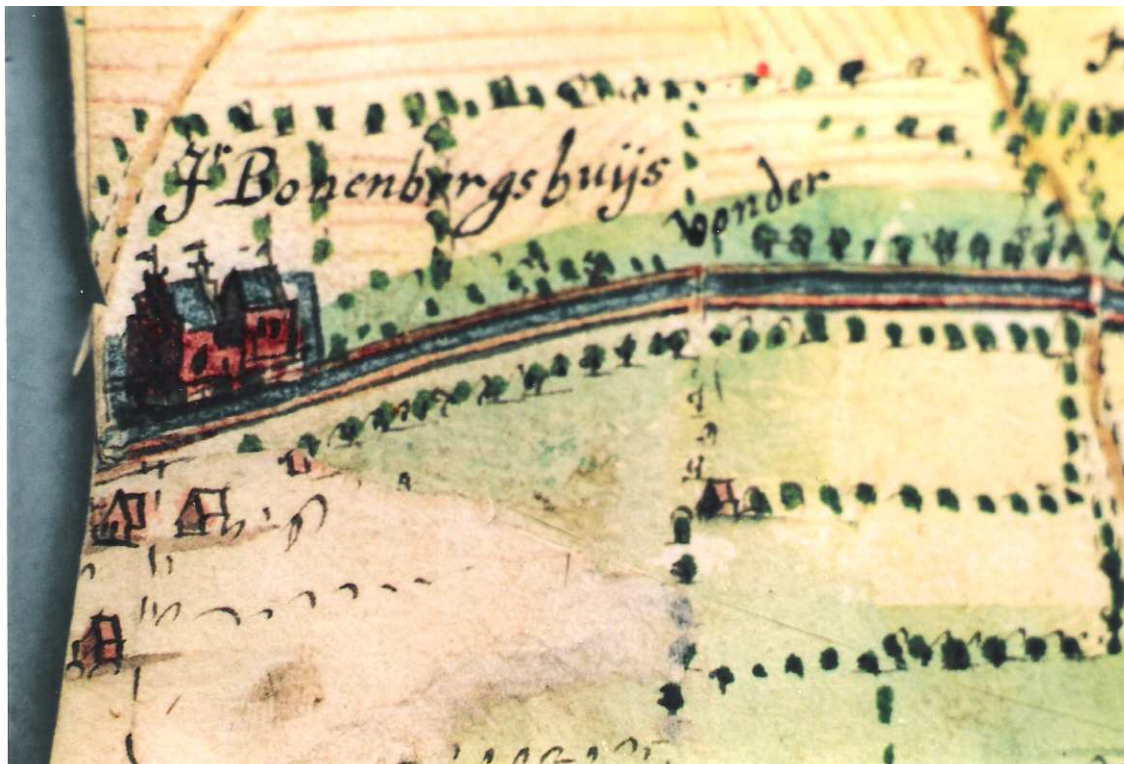 Jr Bonenbergshuijs
vonder